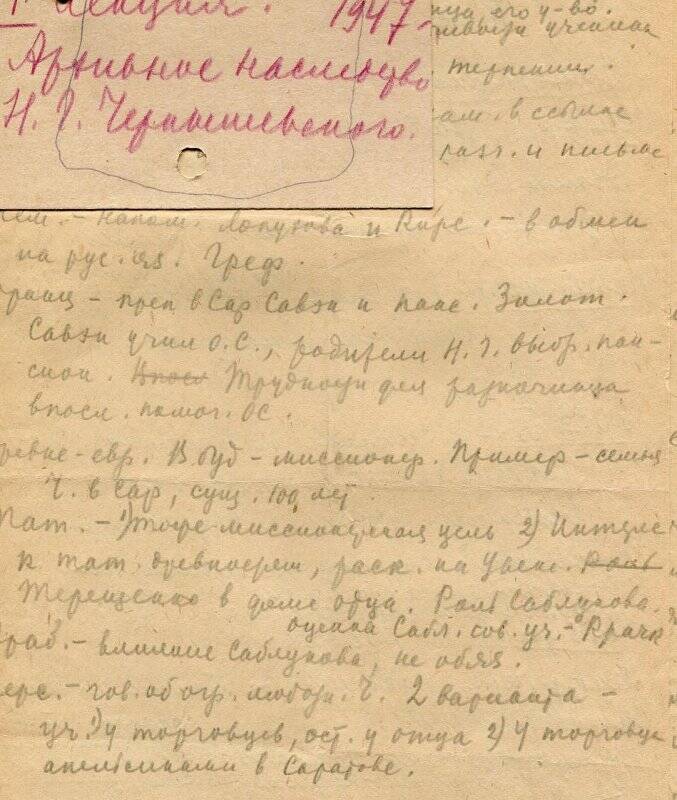 I лекция. 1947
Архивное наследство
Н. Г. Чернышевского.
ица его у-во.
ученика
терпения.
ам. в ссылке
разг. и письме
ем. – напом. Лопухова и Кирс. – в обмен
на рус. яз. Греф.
Франц – преп в Сар Савэн и панс. Золот.
Савэн учил О.С., родители Н.Г. выбр. пан-
сион. Трудности для разночинца
впосл. помог. ОС.
ревне-евр. В буд – миссионер. Пример – семья
Ч. в Сар, сущ. 100 лет
Тат. – 1) тоже миссионерская цель 2) Интерес
к тат. древностям, раск. на Увеке. Роль
Терещенко в доме отца. Роль Саблукова.
оценка Сабл. сов. уч. – Крачк
Араб. – влияние Саблукова, не обяз.
ерс. – гов. об огр. любозн. Ч. 2 варианта –
уч 1) у торговцев, ост. у отца 2) У торговца
апельсинами в Саратове.